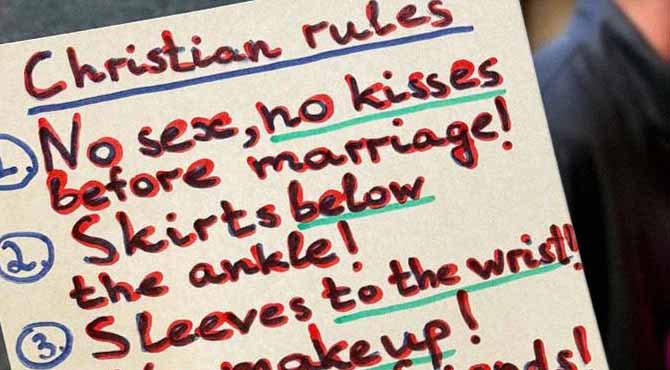 Christian rules
1. No sex, no kisses
before marriage!
2. Skirts below
the ankle!
3. Sleeves to the wrist!
makeup!